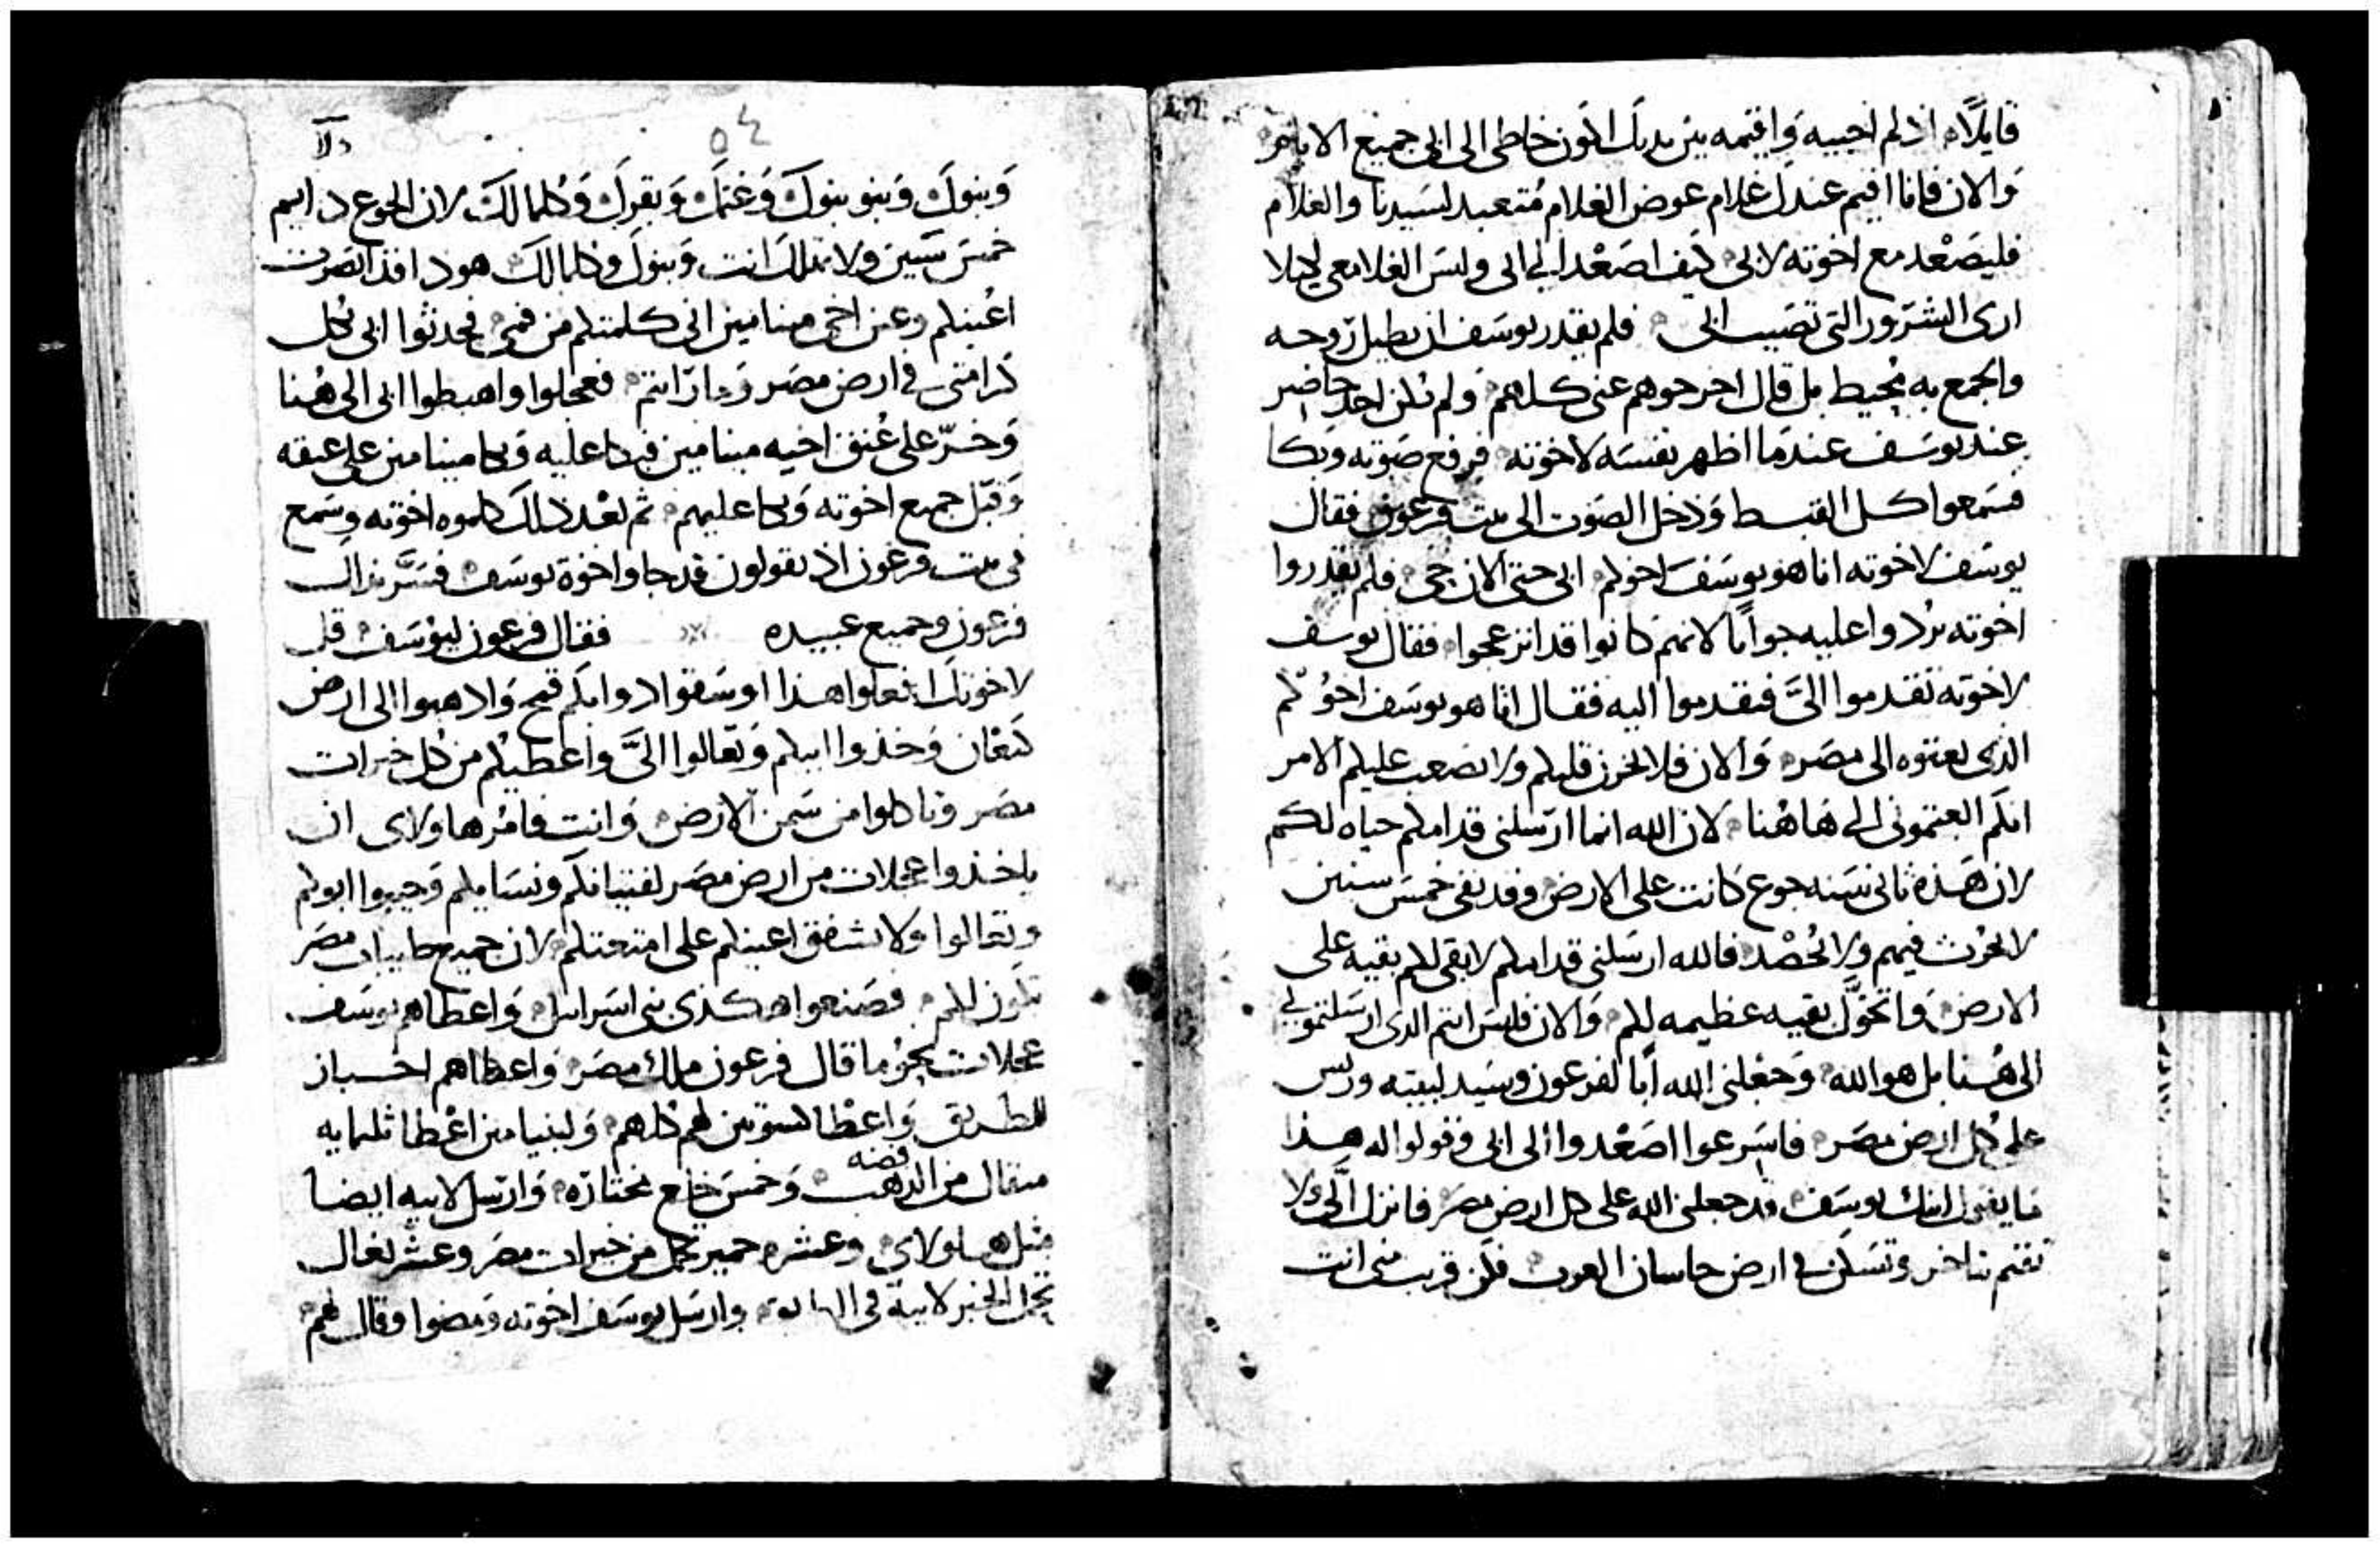 قايلاً اذ لم اجيبه واقيمه بين يديك اكون خاطى الى ابى جميع الايام
والان فانا اقيم عندك غلام عوض الغلام متعبد لسيدنا والغلام
فليصعد مع اخوته لانى كيف اصعد الى ابى وليس الغلام معى ليلا
ارى الشرور التى تصيب ابى فلم يقدر يوسف ان يطيل روحه
والجمع به محيط بل قال اخرجوهم عنى كلهم ولم يكن احد حاضر
عند يوسف عندما اظهر نفسه لاخوته فرفع صوته وبكا
فسمعوا كل القبط ودخل الصوت الى بيت فرعون فقال
يوسف لاخوته انا هو يوسف اخوكم ابى حتى الان حى فلم يقدروا
اخوته يردوا عليه جواباً لانهم كانوا قد انزعجوا فقال يوسف
لاخوته تقدموا الىَّ فتقدموا اليه فقال انا هو يوسف اخوكم
الذى بعتوه الى مصر والان فلا تحزن قلبكم ولا تصعب عليكم الامر
انكم ابعتمونى الى هاهنا لان الله انما ارسلنى قدامكم حياه لكم
لان هذه ثانى سنه جوع كانت على الارض وقد بقى خمس سنين
لا تحرث فيهم ولا تحصد فالله ارسلنى قدامكم لابقى لكم بقيه على
الارض واتخوَّل بقيه عظيمه لكم والان فليس انتم الذى ارسلتمونى
الى هنا بل هو الله وجعلنى الله اباً لفرعون وسيد لبيته وريس
على كل ارض مصر فاسرعوا اصعدوا الى ابى وقولوا له هذا
ما يقول ابنك يوسف قد جعلنى الله على كل ارض مصر فانزل الىَّ ولا
تقيم تتاخر وتسكن فى ارض جاسان العرب فكن قريب منى انت
٥٤
وبنوك وبنو بنوك وغنمك وبقرك وكلما لك لان الجوع دايم
خمس سنين ولا تهلك انت وبنوك وكلما لك هوذا قد ابصرت
اعينكم وعين اخى بنيامين انى كلمتكم من فمى فحدثوا ابى بكل
كرامتى فى ارض مصر وما رايتم فعجلوا واهبطوا ابى الى هنا
وخرّ على عنق اخيه بنيامين فبكا عليه وبكا بنيامين على عنقه
وقبّل جميع اخوته وبكا عليهم ثم بعد ذلك كلموه اخوته وسمع
فى بيت فرعون اذ يقولون قد جاوا اخوة يوسف فسَرَّ بذلك
فرعون وجميع عبيده فقال فرعون ليوسف قل
لاخوتك افعلوا هذا اوسقوا دوابكم قمح واذهبوا الى ارض
كنعان وخذوا ابيكم وتعالوا الىَّ واعطيكم من كل خيرات
مصر وتاكلوا من سمن الارض وانت فامرها ولاى ان
ياخذوا عجلات من ارض مصر لفتيانكم ونسايكم وجيبوا ابوكم
وتعالوا ولا تشفق اعينكم على امتعتكم لان جميع طيبات مصر
تكون لكم فصنعوا هكذى بنى اسراييل واعطاهم يوسف
عجلات نحو ما قال فرعون ملك مصر واعطاهم اخباز
للطريق واعطا لهم كلهم ولبنيامين اعطا ثلثمايه
مثقال من الذهب فضه وخمس خلع مختاره وارسل لابيه ايضاً
مثل هاولاى وعشره حمير تحمل من خيرات مصر وعشر بغال
تحمل الخبز لابيه فى وارسل يوسف اخوته ومضوا وقال لهم